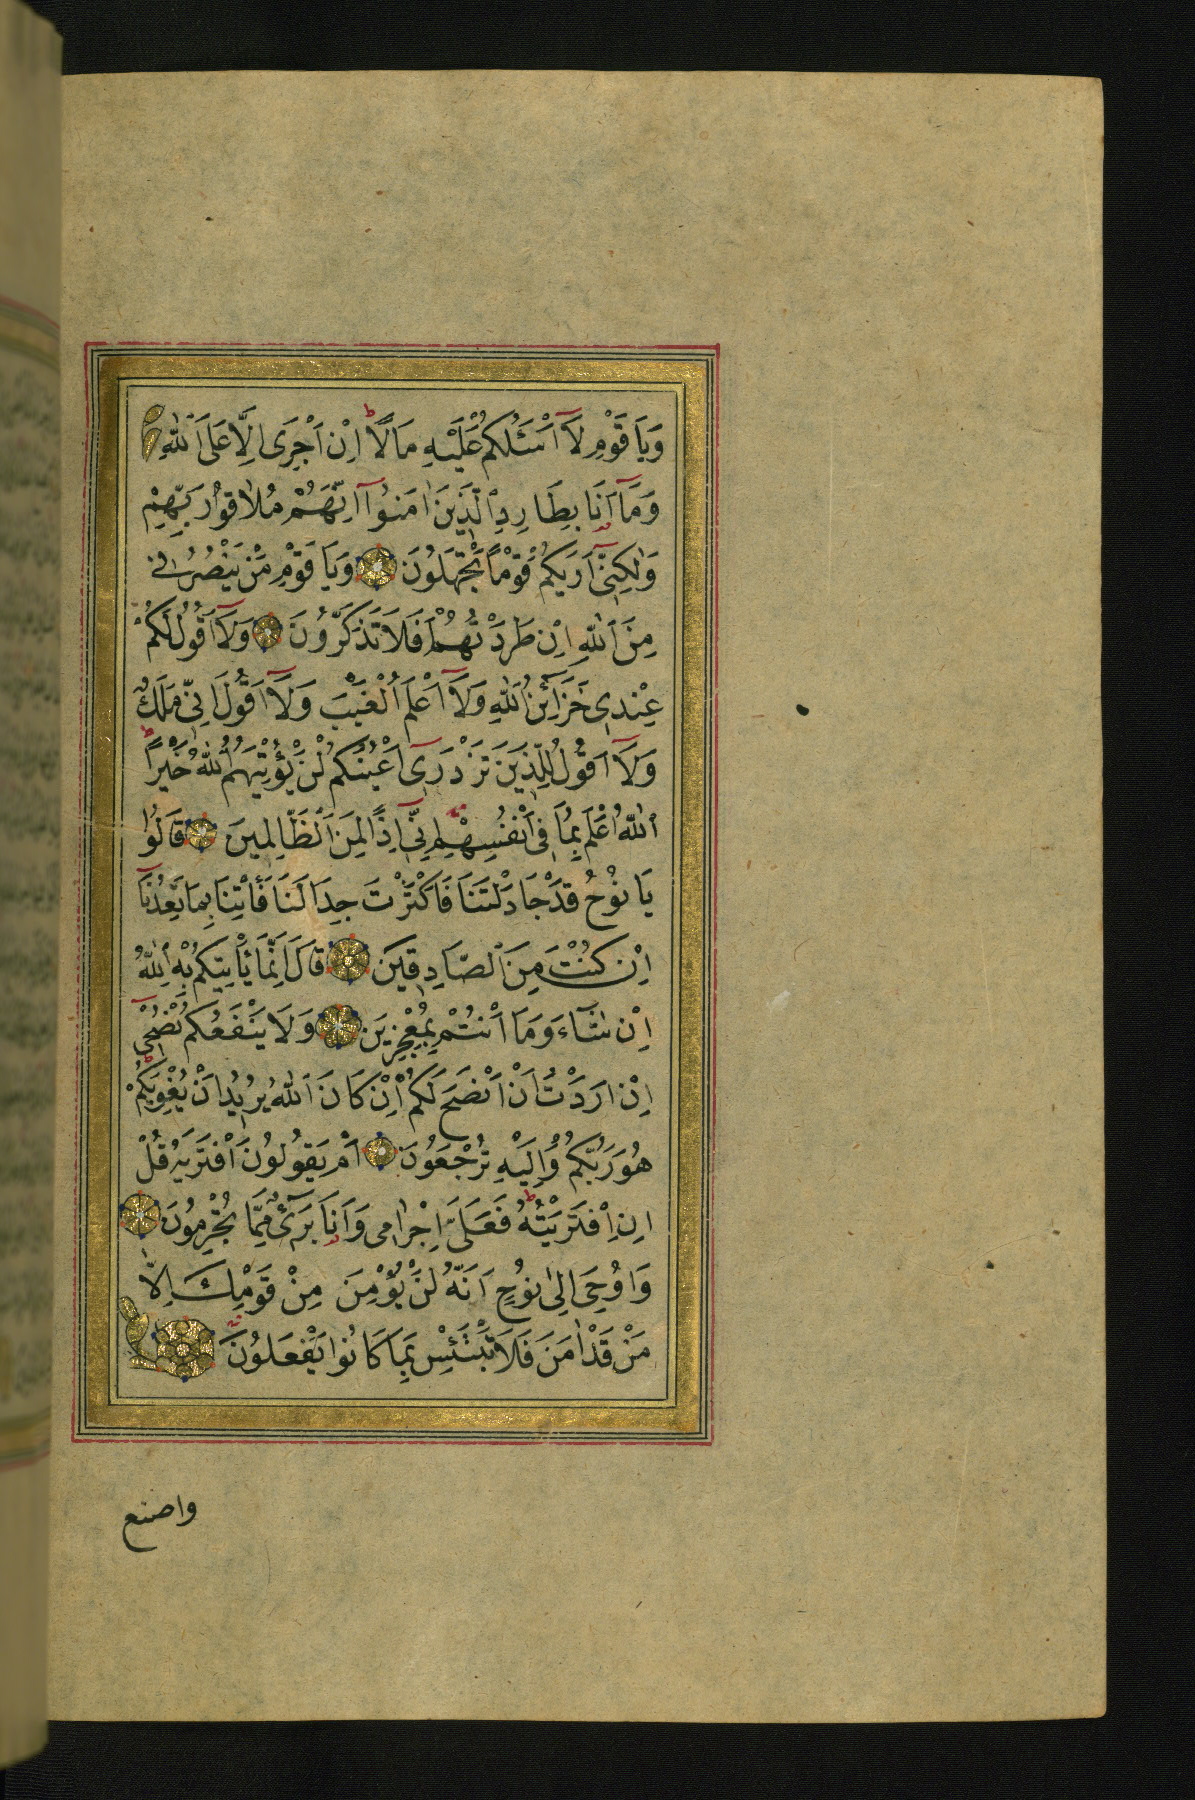 وَيَا قَوْمِ لَآ اَسْئَلُكُمْ عَلَيْهِ مَالًا اِنْ اَجْرِىَ اِلَّا عَلَى ٱللّٰهِ
وَمَآ اَنَا بِطَارِدِ ٱلَّذِينَ اٰمَنُوٓا اِنَّهُمْ مُلَاقُوا رَبِّهِمْ
وَلٰكِنِّىٓ اَرٰيكُمْ قَوْمًا تَجْهَلُونَ وَيَا قَوْمِ مَنْ يَنْصُرُنِى
مِنَ ٱللّٰهِ اِنْ طَرَدْتُهُمْ اَفَلَا تَذَكَّرُونَ وَلَآ اَقُولُ لَكُمْ
عِنْدِى خَزَآئِنُ ٱللّٰهِ وَلَآ اَعْلَمُ ٱلْغَيْبَ وَلَآ اَقُولُ اِنِّى مَلَكٌ
وَلَآ اَقُولُ لِلَّذِينَ تَزْدَرِىٓ اَعْيُنُكُمْ لَنْ يُؤْتِيَهُمُ ٱللّٰهُ خَيْرًا
ٱللّٰهُ اَعْلَمُ بِمَا فِىٓ اَنْفُسِهِمْ اِنِّىٓ اِذًا لَمِنَ ٱلظَّالِمِينَ قَالُوا
يَا نُوحُ قَدْ جَادَلْتَنَا فَاَكْثَرْتَ جِدَالَنَا فَأْتِنَا بِمَا تَعِدُنَآ
اِنْ كُنْتَ مِنَ ٱلصَّادِقِينَ قَالَ اِنَّمَا يَأْتِيكُمْ بِهِ ٱللّٰهُ
اِنْ شَآءَ وَمَا اَنْتُمْ بِمُعْجِزِينَ وَلَا يَنْفَعُكُمْ نُصْحِىٓ
اِنْ اَرَدْتُ اَنْ اَنْصَحَ لَكُمْ اِنْ كَانَ ٱللّٰهُ يُرِيدُ اَنْ يُغْوِيَكُمْ
هُوَ رَبُّكُمْ وَاِلَيْهِ تُرْجَعُونَ اَمْ يَقُولُونَ ٱفْتَرٰيهُ قُلْ
اِنِ ٱفْتَرَيْتُهُ فَعَلَىَّ اِجْرَامِى وَاَنَا بَرِىٓءٌ مِمَّا تُجْرِمُونَ
وَاُوحِىَ اِلٰى نُوحٍ اَنَّهُ لَنْ يُؤْمِنَ مِنْ قَوْمِكَ اِلَّا
مَنْ قَدْ اٰمَنَ فَلَا تَبْتَئِسْ بِمَا كَانُوا يَفْعَلُونَ
واصنع